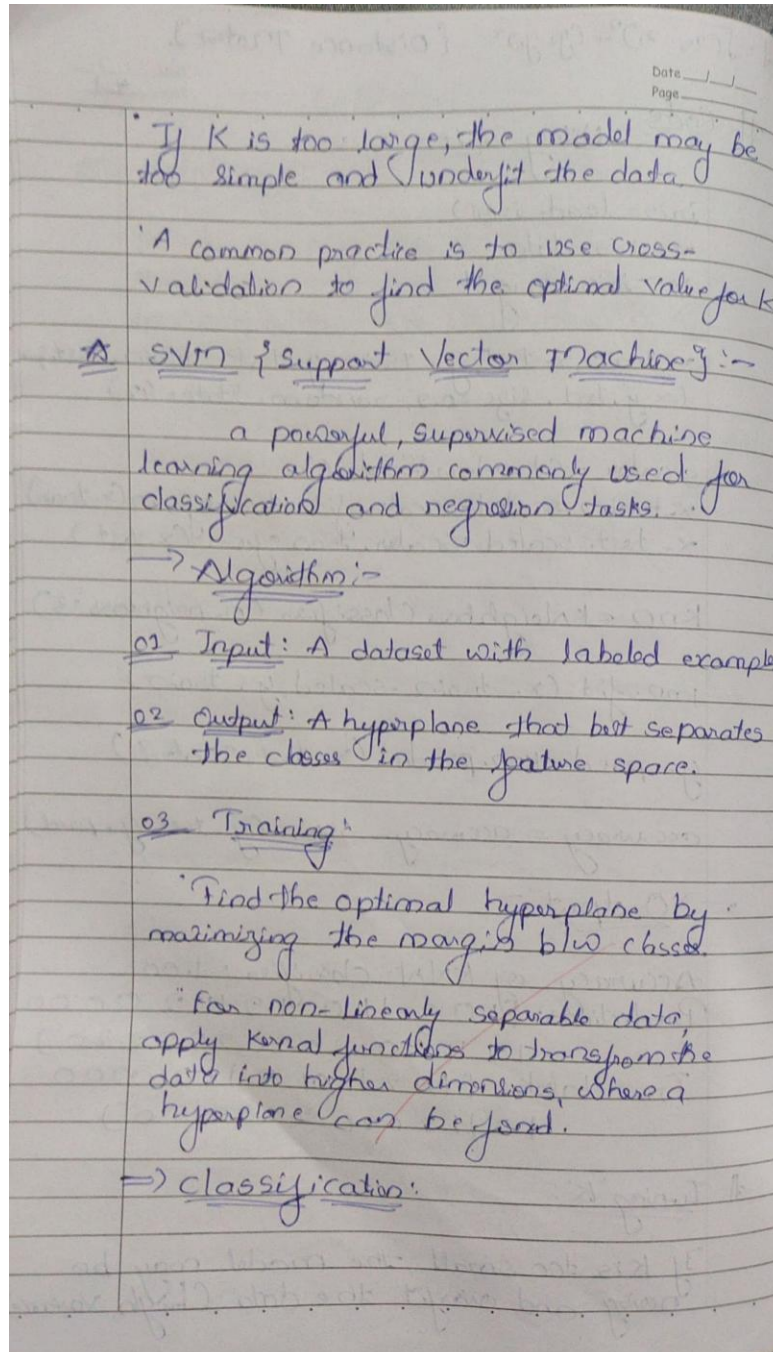 Date __/__/__
Page ____
• If K is too large, the model may be
too simple and underfit the data
• A common practice is to use cross-
validation to find the optimal value for K
SVM {Support Vector Machine} :-
a powerful, supervised machine
learning algorithm commonly used for
classification and regression tasks.
→ Algorithm :-
01 Input : A dataset with labeled example
02 Output : A hyperplane that best separates
the classes in the feature space.
03 Training :
• Find the optimal hyperplane by
maximizing the margin b/w classes.
• For non-linearly separable data,
apply Kernal functions to transfrom the
data into higher dimensions, where a
hyperplane can be found.
=> classification :